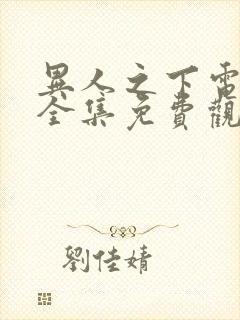 異人之下電
全集免費觀
劉佳婧